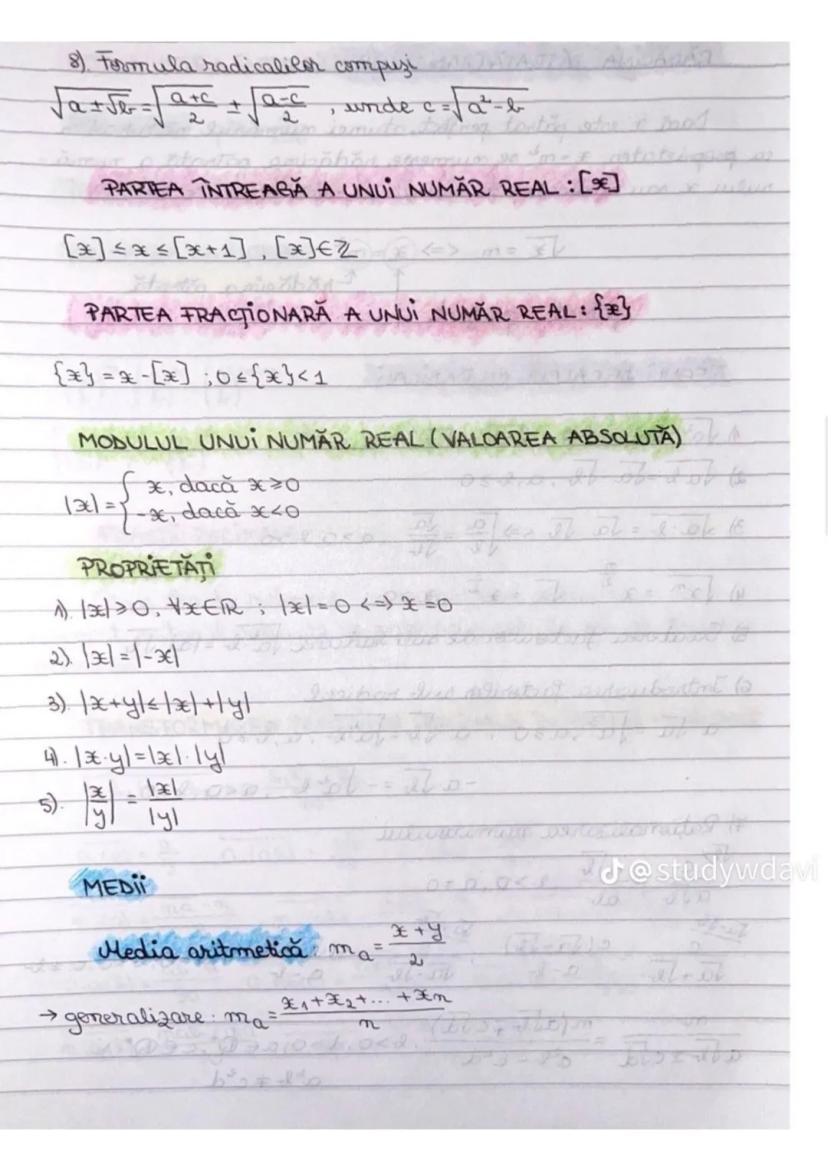 8). Formula radicalilor compuși
√(a±√b) = √((a+c)/2) ± √((a-c)/2) , unde c = √(a²-b)
PARTEA ÎNTREAGĂ A UNUI NUMĂR REAL : [x]
[x] ≤ x ≤ [x+1] , [x]∈ℤ
PARTEA FRACȚIONARĂ A UNUI NUMĂR REAL : {x}
{x} = x - [x] ; 0 ≤ {x} < 1
MODULUL UNUI NUMĂR REAL (VALOAREA ABSOLUTĂ)
|x| = { x, dacă x ≥ 0
-x, dacă x < 0
PROPRIETĂȚI
1). |x| ≥ 0, ∀x∈ℝ ; |x| = 0 <=> x = 0
2). |x| = |-x|
3). |x+y| ≤ |x| + |y|
4). |x·y| = |x|·|y|
5). |x/y| = |x|/|y|
@studywdavi
MEDII
Media aritmetică : mₐ = (x+y)/2
→ generalizare : mₐ = (x₁+x₂+...+xₙ)/n